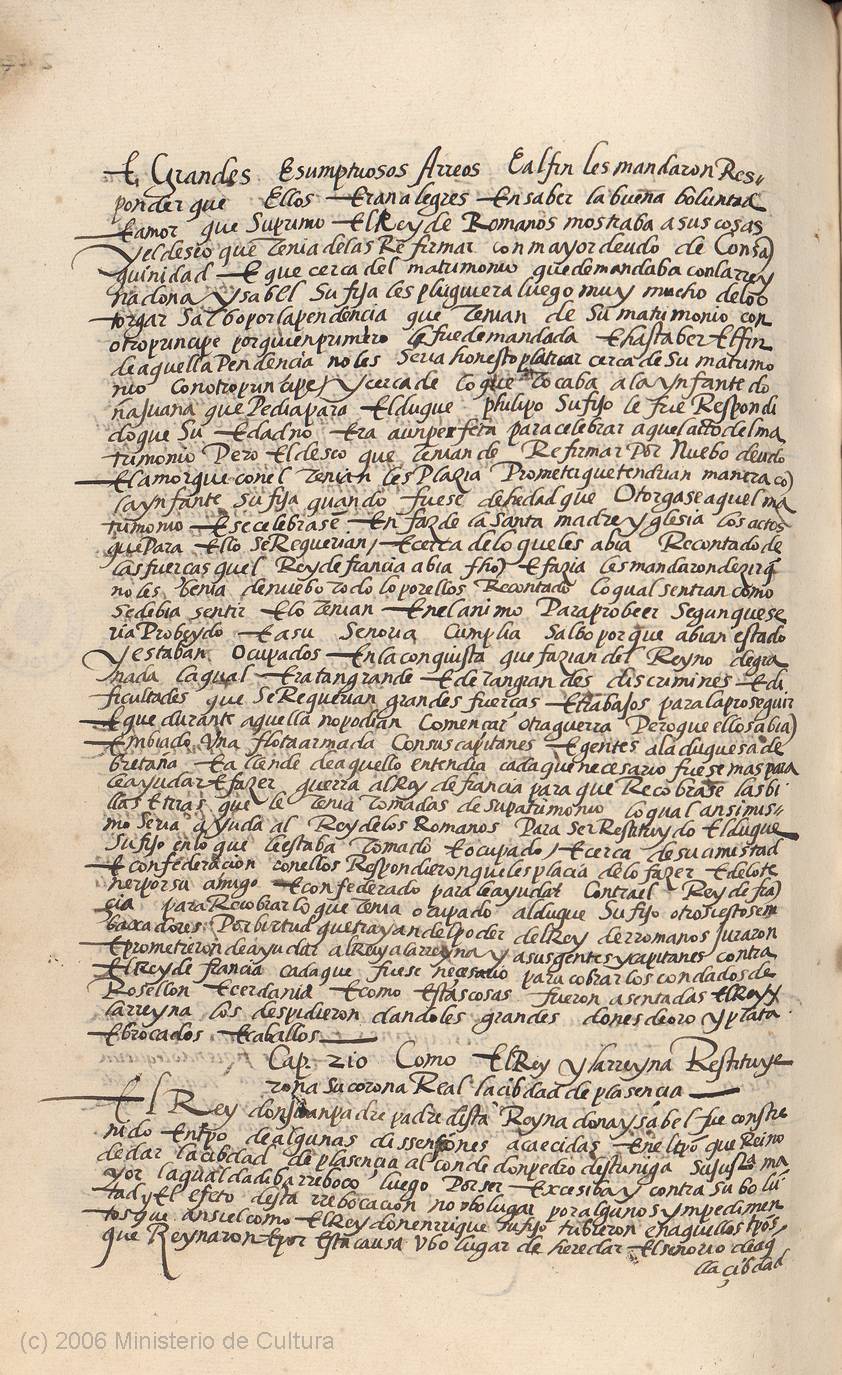 E Grandes Esumptuosos Arreos Ealfin les mandaron Res-
ponder que Ellos Eran alegres En saber la buena boluntad
E amor que Su primo El Rey de Romanos mostraba a sus cosas
Y el deseo que tenia delas Re firmar con mayor deudo de Consa
guinidad E que cerca del matrimonio que demandaba con la rey
na dona Ysabel Su fija les pluguiera luego muy mucho delo o
torgar Salbo por la pendencia que Tenian de Su matrimonio con
otro principe por quien primero le fue demandada E hasta ber El fin
de aquella Pendencia no les Seria honesto platicar cerca de Su matrimo
nio con otro principe Y cerca de lo que Tocaba a la ynfante do
ña Juana que Pedia para El duque philipo Su fijo le fue Respondi
do que Su Edad no Era aun perfeta para celebrar aquel acto del ma
trimonio Pero El deseo que Tenian de Re firmar Por Nuebo deudo
El amor que con el Tenian les Plazia Prometer que tendrian manera co
la ynfante Su fija quando fuese de hedad que Otorgase aquel ma
trimonio E se celebrase En faz de la Santa madre yglesia los actos
que Para Ello Se Requerian E cerca de lo que les abia Recontado de
las fuercas quel Rey de francia abia fho E fazia les mandaron dezir q
no les benia de nuebo todo lo por ellos Recontado Lo qual sentian como
Se debia sentir E lo Tenian En el animo Para probeer Segun que se
ria Probeydo E a su Senoria Cumplia Salbo por que abian estado
Y estaban Ocupados En la conquista que fazian del Reyno de gra
nada la qual Era tan grande E de tan grandes discrimines E di
ficultades que Se Requerian grandes fuercas E trabajos para la proseguir
E que durante aquella no podian Comencar otra guerra Pero que ellos abia
Embiado Una flota armada Con sus capitanes E gentes a la duquesa de
bretaña E allende de aquello entendia cada que necesario fuese mas para
le ayudar E fazer guerra al Rey de francia para que Recobrase las bi
llas E tras que le Tenia Tomadas de su patrimonio lo qual ansimis-
mo Seria ayuda al Rey de los Romanos Para Ser Restituydo El duque
Su fijo en lo que le estaba Tomado E ocupado E cerca de su amistad
E confederacion con ellos Respondieron que les placia de lo fazer E de lo te
ner por su amigo E confederado para le ayudar Contra el Rey de fra
cia para Recobrar lo que Tenia ocupado al duque Su fijo otrosi estos em
baxadores Por birtud que trayan del poder del Rey de rromanos juraron
E prometieron de ayudar al Rey a la rreyna y a sus gentes y capitanes contra
El Rey de francia cada que fuese neçesario para cobrar los condados de
Rosellon E cerdania E como Estas cosas fueron asentadas El Rey y
la rreyna los despidieron dandoles grandes dones de oro y plata
E brocados E caballos
Cap. 210 Como El Rey y la rreyna Restituye
rona Su corona Real la cibdad de plasençia
El Rey don Juan padre desta Reyna dona ysabel fue constre
nido En tpo de algunas dissensiones acaecidas En el tpo que Reino
de dar la cibdad de plasencia al conde don pedro destuniga Su justiçia ma
yor la qual dadiba rreboco luego Por ser Excesiba y contra Su bolu
tad y El efeto desta rrebocacion no vbo lugar por algunos ympedimen
tos que ansi el como El Rey don enrrique Su fijo tubieron en aquellos tpos
que Reynaron E por Esta causa Vbo lugar de heredar El señorio de aq
lla çibdad
(c) 2006 Ministerio de Cultura